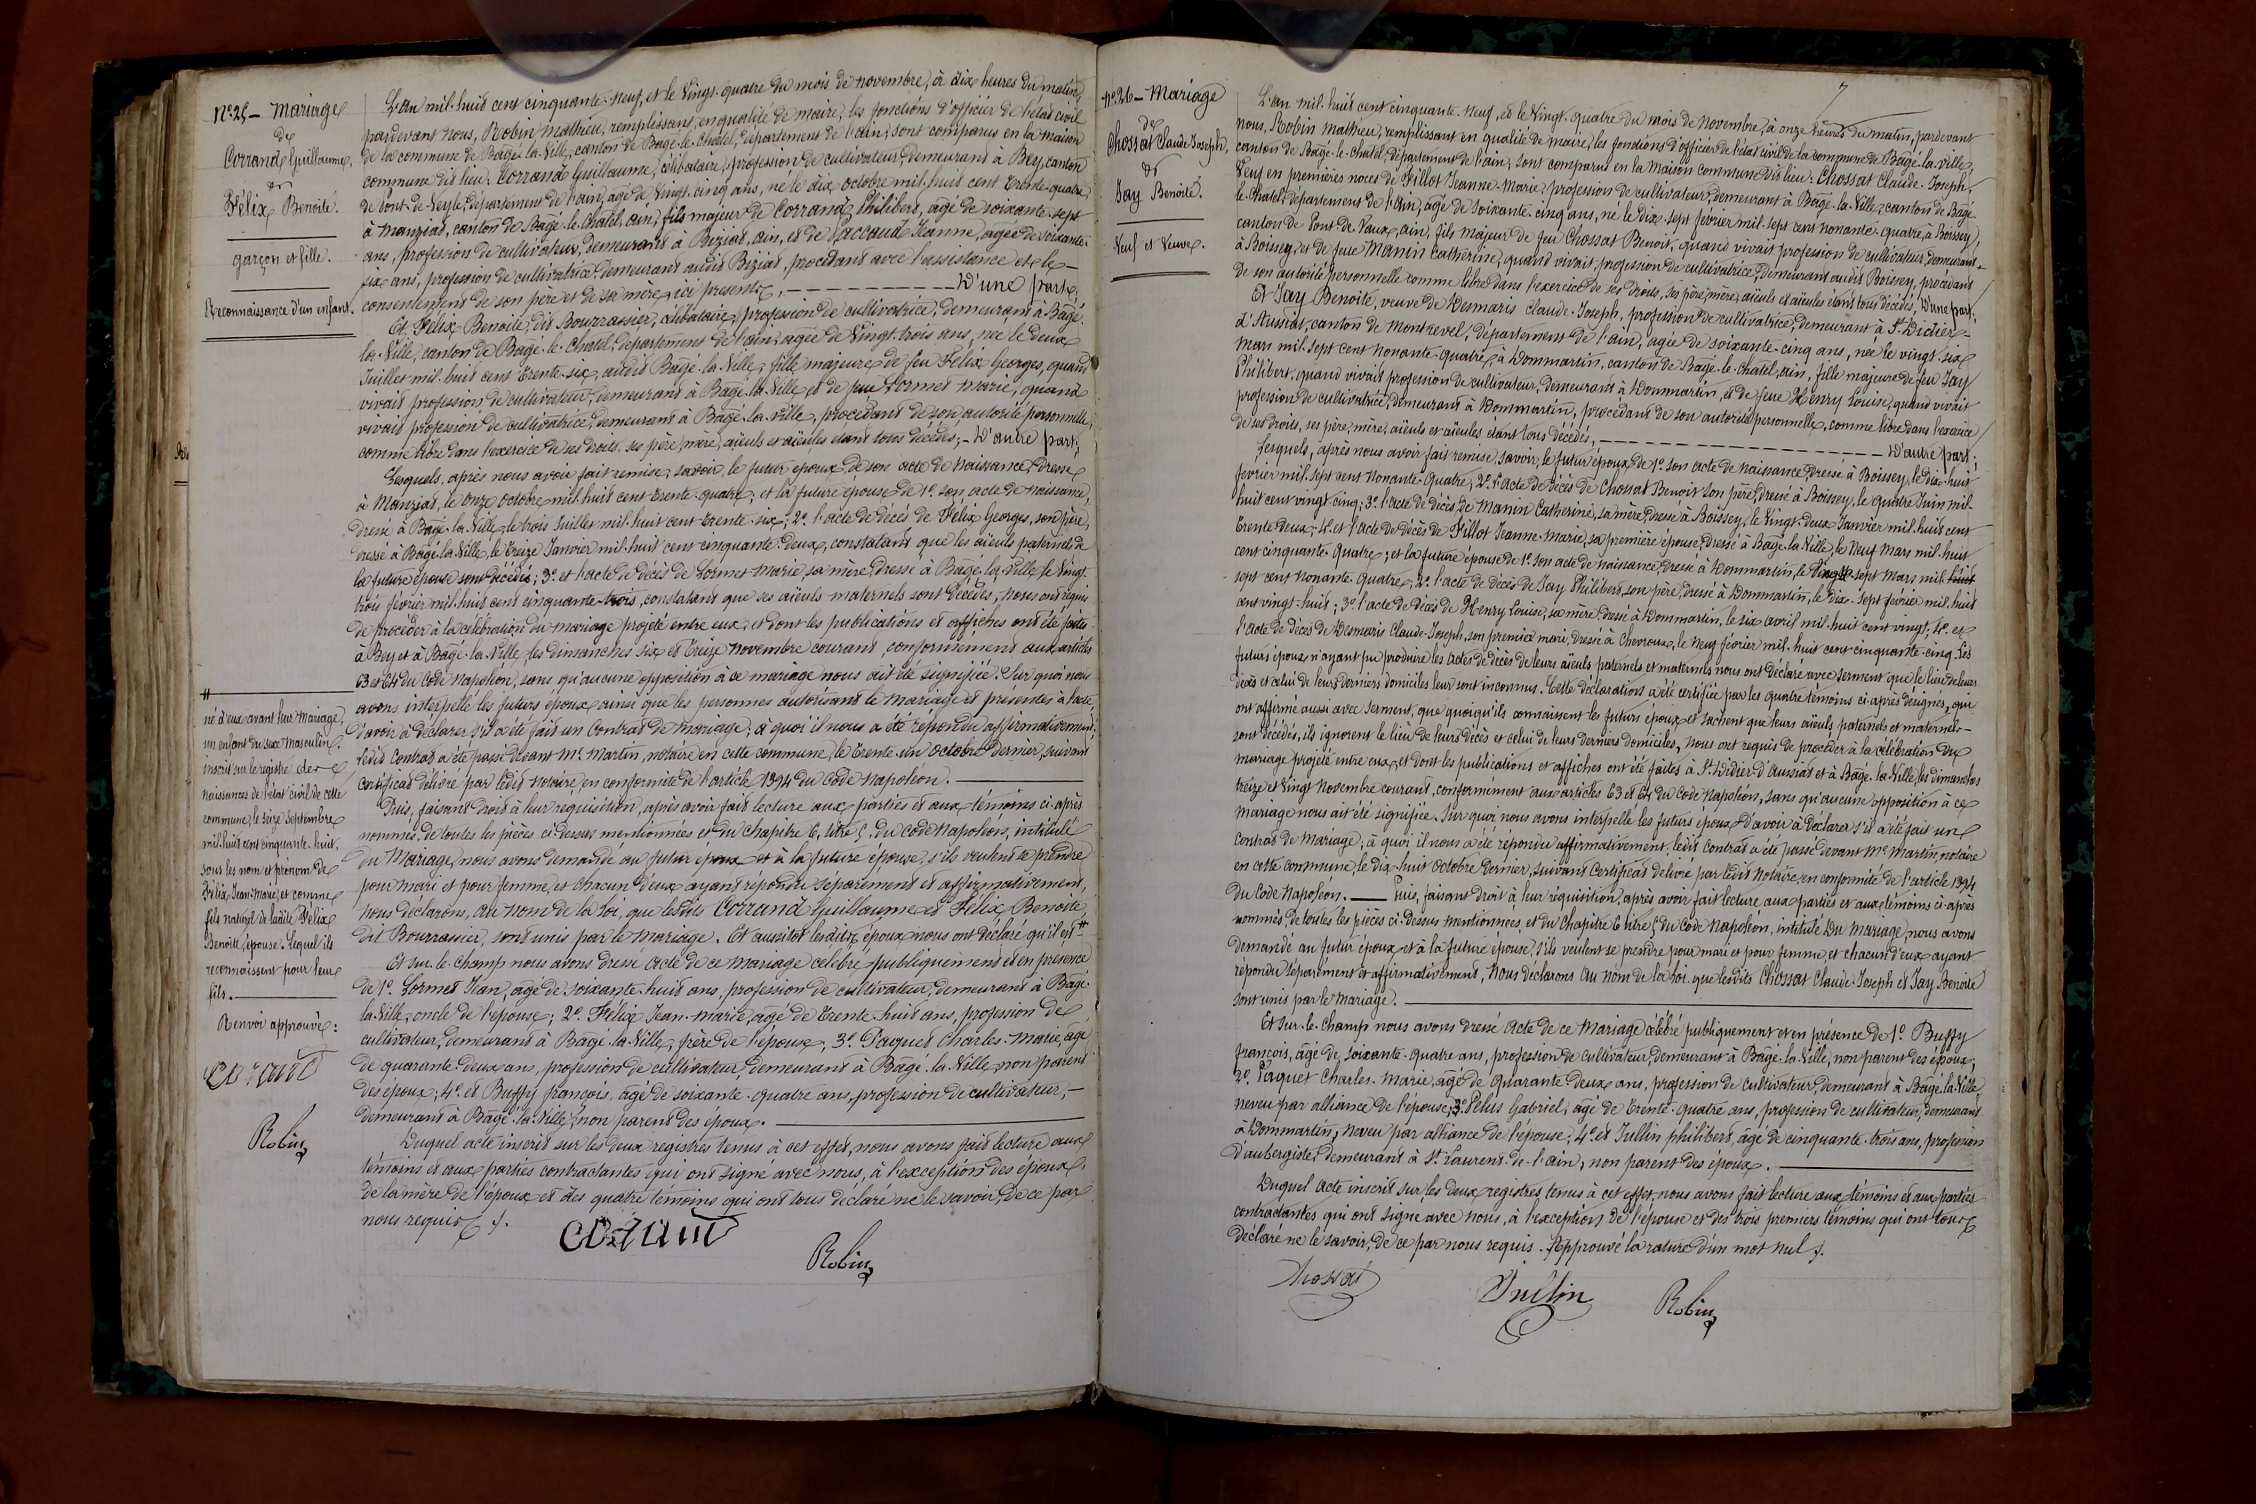 N° 25 – Mariage
de
Corrand Guillaume
et
Félix Benoîte.
garçon et fille.
Reconnaissance d'un enfant.
L'an mil-huit cent cinquante-neuf, et le vingt-quatre du mois de novembre, à dix heures du matin,
pardevant nous, Robin Mathieu, remplissant, en qualité de maire, les fonctions d'officier de l'état civil
de la commune de Bâgé-la-Ville, canton de Bâgé-le-Châtel, département de l'ain, sont comparus en la maison
commune dit lieu: Corrand Guillaume, célibataire, profession de cultivateur, demeurant à Bey, canton
de Pont-de-Veyle, département de l'ain, âgé de vingt-cinq ans, né le dix octobre mil-huit cent trente-quatre
à Manziat, canton de Bâgé-le-Châtel, ain, fils majeur de Corrand Philibert, âgé de soixante-sept
ans, profession de cultivateur, demeurant à Biziat, ain, et de Jeanne, âgée de soixante-
six ans, profession de cultivatrice, demeurant audit Biziat, procédant avec l'assistance et le
consentement de son père et de sa mère, ici présents, D'une part;
Et Félix Benoîte, dit Bourrassier, célibataire, profession de cultivatrice, demeurant à Bâgé-
la-Ville, canton de Bâgé-le-Châtel, département de l'ain, âgée de vingt-trois ans, née le deux
Juillet mil-huit cent trente-six, audit Bâgé-la-Ville, fille majeure de feu Félix Georges, quand
vivait profession de cultivateur, demeurant à Bâgé-la-Ville et de feue Lormet Marie, quand
vivait profession de cultivatrice, demeurant à Bâgé-la-Ville, procédant de son autorité personnelle,
comme libre dans l'exercice de ses droits, ses père, mère, aïeuls et aïeules étant tous décédés; – D'autre part;
Lesquels, après nous avoir fait remise, savoir, le futur époux, de son acte de naissance, dressé
à Manziat, le onze octobre mil-huit cent trente-quatre; et la future épouse de 1° son acte de naissance,
dressé à Bâgé-la-Ville, le trois Juillet mil-huit cent trente-six; 2° l'acte de décès de Félix Georges, son père,
dressé à Bâgé-la-Ville, le treize Janvier mil-huit cent cinquante-deux, constatant que les aïeuls paternels de
la future épouse sont décédés; 3° et l'acte de décès de Lormet Marie, sa mère, dressé à Bâgé-la-Ville le vingt-
trois février mil-huit cent cinquante-trois, constatant que ses aïeuls maternels sont décédés, nous ont requis
de procéder à la célébration du mariage projeté entre eux, et dont les publications et affiches ont été faites
à Bey et à Bâgé-la-Ville, les dimanches six et treize novembre courant, conformément aux articles
63 et 64 du Code Napoléon, sans qu'aucune opposition à ce mariage nous ait été signifiée. Sur quoi nous
avons interpellé les futurs époux, ainsi que les personnes autorisant le mariage et présentes à l'acte,
d'avoir à déclarer s'il a été fait un Contrat de mariage; à quoi il nous a été répondu affirmativement;
ledit Contrat a été passé devant Me Martin, notaire en cette commune, le trente-un octobre dernier, suivant
Certificat délivré par ledit notaire, en conformité de l'article 1394 du Code Napoléon.
Puis, faisant droit à leur réquisition, après avoir fait lecture aux parties et aux témoins ci-après
nommés, de toutes les pièces ci-dessus mentionnées et du chapitre 6, titre 5, du Code Napoléon, intitulé
du Mariage, nous avons demandé au futur époux et à la future épouse, s'ils veulent se prendre
pour mari et pour femme, et chacun d'eux ayant répondu séparément et affirmativement,
Nous déclarons, au nom de la Loi, que lesdits Corrand Guillaume et Félix Benoîte
dit Bourrassier, sont unis par le mariage. Et aussitôt lesdits époux nous ont déclaré qu'il est #
Et sur-le-champ nous avons dressé acte de ce mariage célébré publiquement et en présence
de 1° Lormet Jean, âgé de soixante-huit ans, profession de cultivateur, demeurant à Bâgé-
la-Ville, oncle de l'épouse; 2° Félix Jean-Marie, âgé de trente-huit ans, profession de
cultivateur, demeurant à Bâgé-la-Ville, frère de l'épouse; 3° Paquet Charles-Marie, âgé
de quarante-deux ans, profession de cultivateur, demeurant à Bâgé-la-Ville, non parent
des époux; 4° et Buffy françois, âgé de soixante-quatre ans, profession de cultivateur,
demeurant à Bâgé-la-Ville, non parent des époux.
Duquel acte inscrit sur les deux registres tenus à cet effet, nous avons fait lecture aux
témoins et aux parties contractantes qui ont signé avec nous, à l'exception des époux,
de la mère de l'époux et des quatre témoins qui ont tous déclaré ne le savoir, de ce par
nous requis.
Robin
#
né d'eux avant leur mariage,
un enfant du sexe masculin,
inscrit sur le registre des
naissances de l'état civil de cette
commune, le seize septembre
mil-huit cent cinquante-huit,
sous les nom et prénom de
Félix, Jean-Marie, et comme
fils naturel de ladite Félix
Benoîte, épouse. Lequel ils
reconnaissent pour leur
fils.
Renvoi approuvé:
Robin
7
N° 26 – Mariage
de
Chossat Claude-Joseph.
et
Jay Benoîte.
Veuf et Veuve.
L'an mil-huit cent cinquante-neuf, et le vingt-quatre du mois de novembre, à onze heures du matin, pardevant
nous, Robin Mathieu, remplissant en qualité de maire, les fonctions d'officier de l'état civil de la commune de Bâgé-la-Ville,
canton de Bâgé-le-Châtel, département de l'ain, sont comparus en la Maison Commune dit lieu: Chossat Claude-Joseph,
Veuf en premières noces de Fillot Jeanne-Marie, profession de cultivateur, demeurant à Bâgé-la-Ville, canton de Bâgé-
le-Châtel, département de l'Ain, âgé de soixante-cinq ans, né le dix-sept février mil-sept cent nonante-quatre, à Boissey,
canton de Pont-de-Vaux, ain, fils majeur de feu Chossat Benoît, quand vivait profession de cultivateur, demeurant
à Boissey, et de feue Manin Catherine, quand vivait, profession de cultivatrice, demeurant audit Boissey, procédant
de son autorité personnelle comme libre dans l'exercice de ses droits, ses père, mère, aïeuls et aïeules étant tous décédés, D'une part;
Et Jay Benoîte, veuve de Desmaris Claude-Joseph, profession de cultivatrice, demeurant à St Didier-
d'Aussiat, canton de Montrevel, département de l'ain, âgée de soixante-cinq ans, née le vingt-six
Mars mil-sept cent nonante-quatre, à Dommartin, canton de Bâgé-le-Châtel, ain, fille majeure de feu Jay
Philibert, quand vivait profession de cultivateur, demeurant à Dommartin, et de feue Henry Louise, quand vivait
profession de cultivatrice, demeurant à Dommartin, procédant de son autorité personnelle, comme libre dans l'exercice
de ses droits, ses père, mère, aïeuls et aïeules étant tous décédés, D'autre part;
Lesquels, après nous avoir fait remise, savoir, le futur époux, de 1° son acte de naissance, dressé à Boissey, le dix-huit
février mil-sept cent nonante-quatre; 2° l'acte de décès de Chossat Benoît son père, dressé à Boissey, le quatre Juin mil-
huit cent vingt-cinq; 3° l'acte de décès de Manin Catherine, sa mère, dressé à Boissey, le vingt-deux Janvier mil-huit cent
trente-deux; 4° et l'acte de décès de Fillot Jeanne-Marie, sa première épouse, dressé à Bâgé-la-Ville, le neuf Mars mil-huit
cent cinquante-quatre; et la future épouse de 1° son acte de naissance, dressé à Dommartin, le vingt-sept Mars mil-huit
sept cent nonante-quatre; 2° l'acte de décès de Jay Philibert, son père, dressé à Dommartin, le dix-sept février mil-huit
cent vingt-huit; 3° l'acte de décès de Henry Louise, sa mère, dressé à Dommartin, le six avril mil-huit cent vingt; 4° et
l'acte de décès de Desmaris Claude-Joseph, son premier mari, dressé à Chevroux, le neuf février mil-huit cent cinquante-cinq. Les
futurs époux n'ayant pu produire les actes de décès de leurs aïeuls paternels et maternels nous ont déclaré avec serment que le lieu de leurs
décès et celui de leurs derniers domiciles leur sont inconnus. Cette déclaration a été certifiée par les quatre témoins ci-après désignés, qui
ont affirmé aussi avec serment, que quoiqu'ils connaissent les futurs époux et sachent que leurs aïeuls paternels et maternels
sont décédés, ils ignorent le lieu de leurs décès et celui de leurs derniers domiciles, nous ont requis de procéder à la célébration du
mariage projeté entre eux, et dont les publications et affiches ont été faites à St Didier-d'Aussiat et à Bâgé-la-Ville, les dimanches
treize et vingt novembre courant, conformément aux articles 63 et 64 du Code Napoléon, sans qu'aucune opposition à ce
mariage nous ait été signifiée. Sur quoi nous avons interpellé les futurs époux d'avoir à déclarer s'il a été fait un
contrat de Mariage, à quoi il nous a été répondu affirmativement, ledit Contrat a été passé devant Me Martin, notaire
en cette commune, le dix-huit octobre dernier, suivant Certificat délivré par ledit notaire en conformité de l'article 1394
du Code Napoléon. — Puis, faisant droit à leur réquisition, après avoir fait lecture aux parties et aux témoins ci-après
nommés, de toutes les pièces ci-dessus mentionnées, et du chapitre 6 titre 5 du Code Napoléon, intitulé Du Mariage, nous avons
demandé au futur époux et à la future épouse, s'ils veulent se prendre pour mari et pour femme, et chacun d'eux ayant
répondu séparément et affirmativement, Nous déclarons au nom de la loi que lesdits Chossat Claude-Joseph et Jay Benoîte
sont unis par le mariage.
Et sur-le-champ nous avons dressé acte de ce Mariage célébré publiquement et en présence de 1° Buffy
françois, âgé de soixante-quatre ans, profession de cultivateur, demeurant à Bâgé-la-Ville, non parent des époux;
2° Paquet Charles-Marie, âgé de quarante-deux ans, profession de cultivateur, demeurant à Bâgé-la-Ville,
neveu par alliance de l'épouse; 3° Pelus Gabriel, âgé de trente-quatre ans, profession de cultivateur, demeurant
à Dommartin, neveu par alliance de l'épouse; 4° et Jullin philibert, âgé de cinquante-trois ans, profession
d'aubergiste, demeurant à St Laurent-de-l'ain, non parent des époux.
Duquel acte inscrit sur les deux registres tenus à cet effet, nous avons fait lecture aux témoins et aux parties
contractantes qui ont signé avec nous, à l'exception de l'épouse et des trois premiers témoins qui ont tous
déclaré ne le savoir, de ce par nous requis. Approuvé la rature d'un mot nul.
Chossat
Jullin
Robin